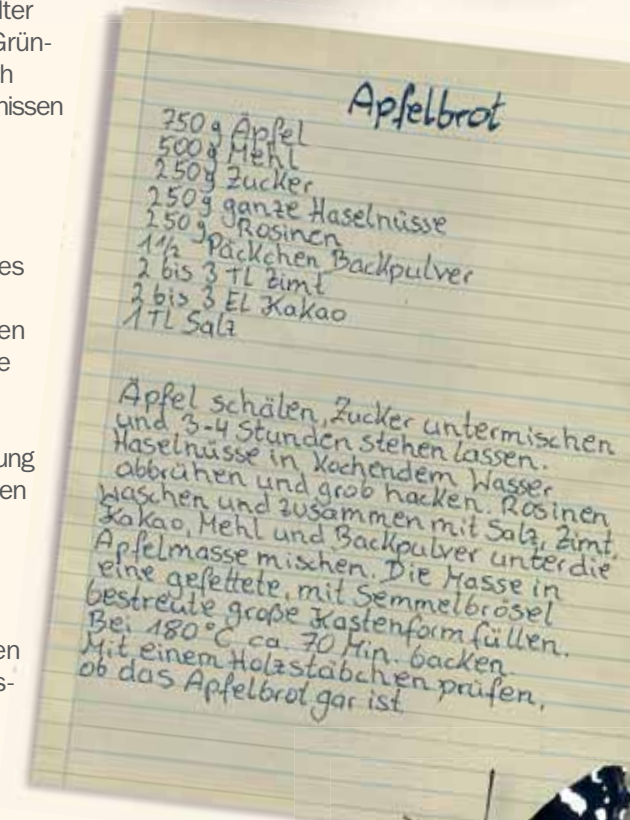 lter
Grün-
h
nissen
es
en
e
ung
en
en
s-
Apfelbrot
750 g Äpfel
500 g Mehl
250 g Zucker
250 g ganze Haselnüsse
250 g Rosinen
1 1/2 Päckchen Backpulver
2 bis 3 TL Zimt
2 bis 3 EL Kakao
1 TL Salz
Äpfel schälen, Zucker untermischen
und 3-4 Stunden stehen lassen.
Haselnüsse in kochendem Wasser
abbrühen und grob hacken. Rosinen
waschen und zusammen mit Salz, Zimt,
Kakao, Mehl und Backpulver unter die
Apfelmasse mischen. Die Masse in
eine gefettete, mit Semmelbrösel
bestreute große Kastenform füllen.
Bei 180°C ca. 70 Min. backen.
Mit einem Holzstäbchen prüfen,
ob das Apfelbrot gar ist.